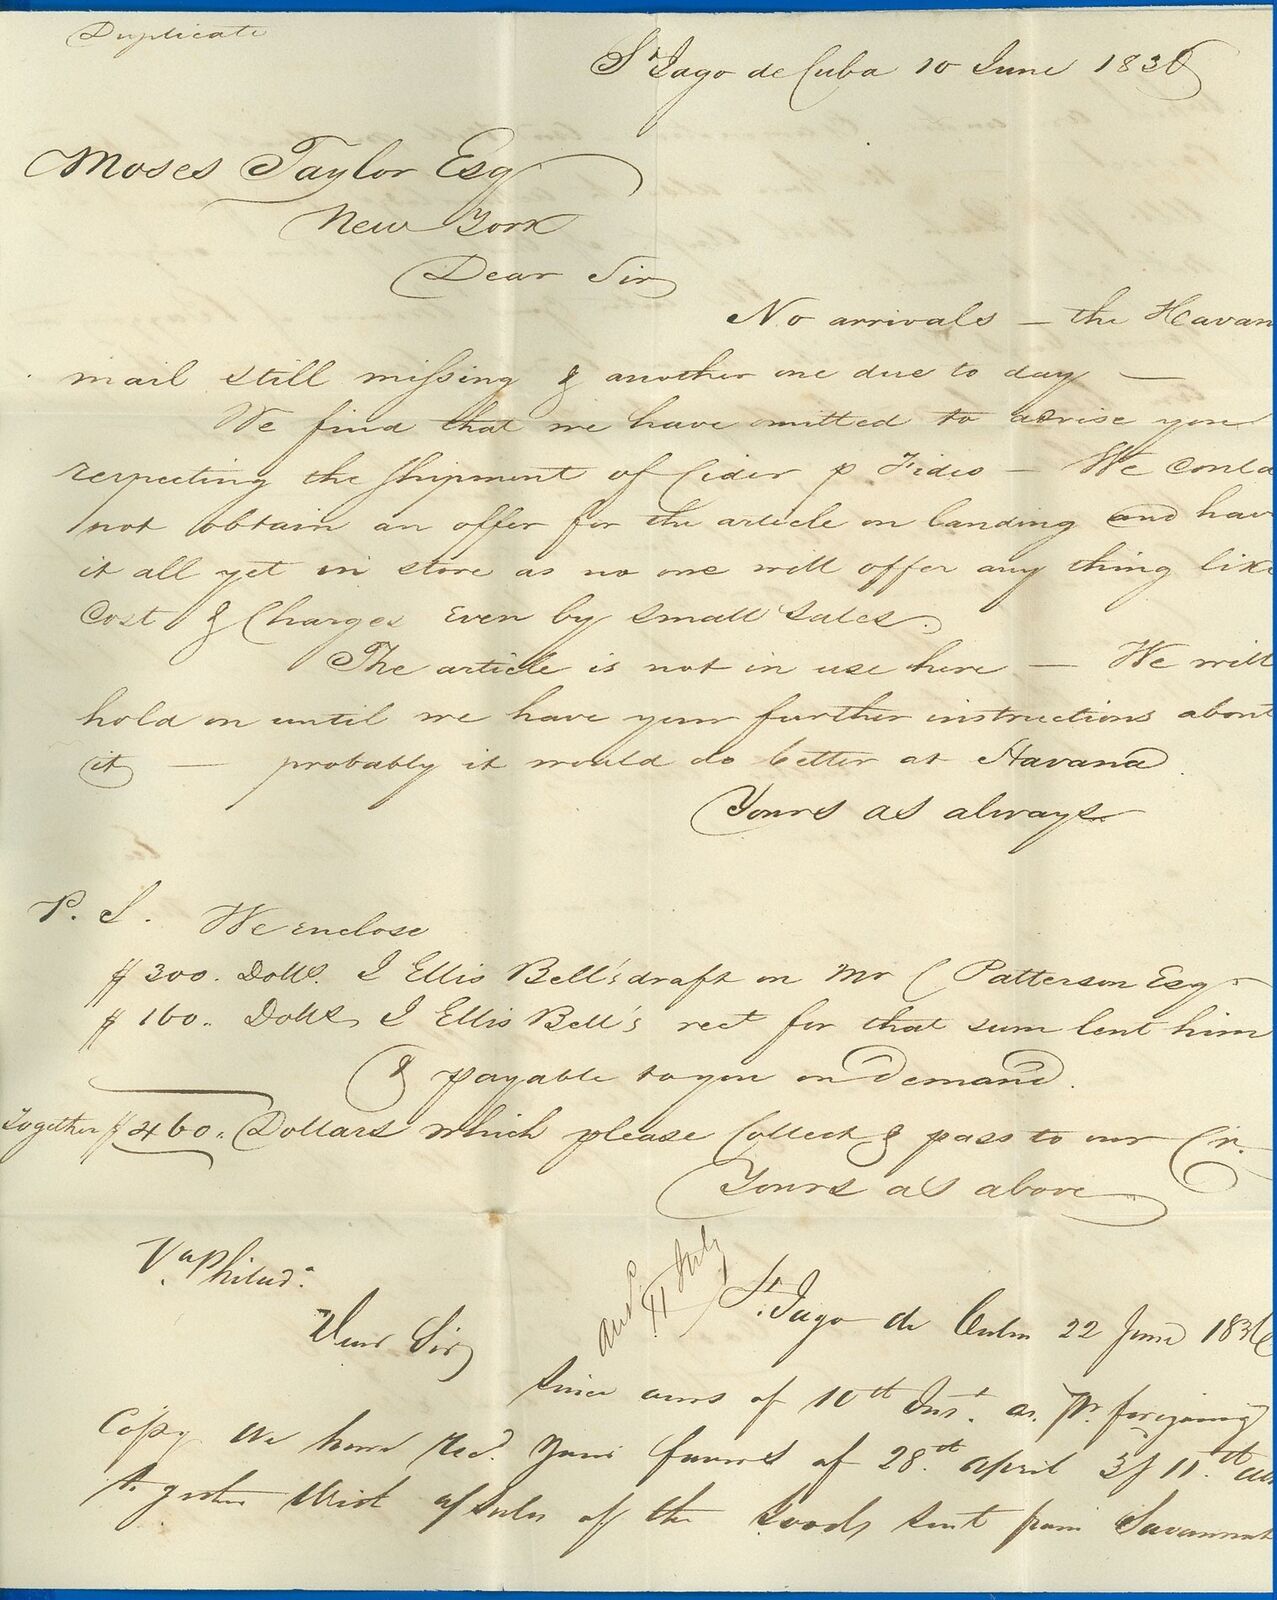 Duplicate
St Jago de Cuba 10 June 1836
Moses Taylor Esq
New York
Dear Sir
No arrivals — the Havan
mail still missing & another one due to day —
We find that we have omitted to advise you
respecting the shipment of Cider p Fides — We could
not obtain an offer for the article on landing and hav
it all yet in store as no one will offer any thing like
Cost & Charges even by small sales.
The article is not in use here — We will
hold on until we have your further instructions about
it — probably it would do better at Havana.
Yours as always
P. S. We enclose
$ 300. Dolls. J Ellis Bell's draft on Mr C Patterson Esq.
$ 160. Dolls J Ellis Bell's rect for that sum lent him
& payable to you on Demand.
Together $ 460. Dollars which please Collect & pass to our Cr.
Yours as above
Via Philad.a
ansd. 11 July
St. Jago de Cuba 22 June 1836
Dear Sir
Since ours of 10th Inst. as pr. foregoing
Copy We have recd. your favors of 28th april & 11th
together With of the Goods sent from Savannah